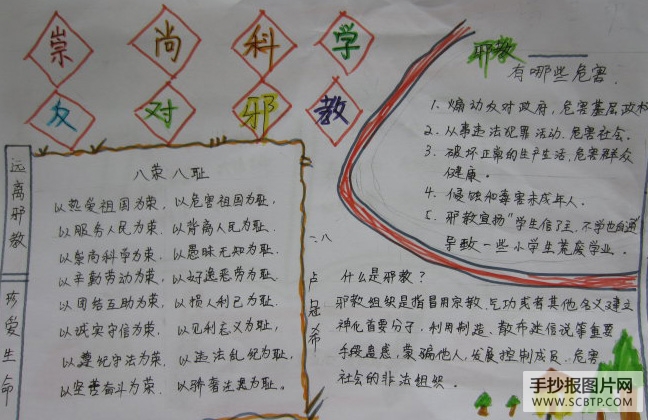 崇尚科学
反对邪教
远离邪教
珍爱生命
八荣八耻
以热爱祖国为荣，以危害祖国为耻，
以服务人民为荣，以背离人民为耻，
以崇尚科学为荣，以愚昧无知为耻，
以辛勤劳动为荣，以好逸恶劳为耻，
以团结互助为荣，以损人利己为耻，
以诚实守信为荣，以见利忘义为耻，
以遵纪守法为荣，以违法乱纪为耻，
以坚苦奋斗为荣，以骄奢淫逸为耻。
一.八
卢冠希
邪教
有哪些危害
1. 煽动反对政府，危害基层政权
2. 从事违法犯罪活动，危害社会.
3. 破坏正常的生产生活，危害群众
健康.
4. 侵蚀和毒害未成年人.
5. 邪教宣扬"学生信了主，不学也会通
导致一些小学生荒废学业.
什么是邪教？
邪教组织是指冒用宗教、气功或者其他名义建立
神化首要分子，利用制造、散布迷信说等重要
手段蛊惑、蒙骗他人，发展控制成员、危害
社会的非法组织.
手抄报图片网
WWW.SCBTP.COM